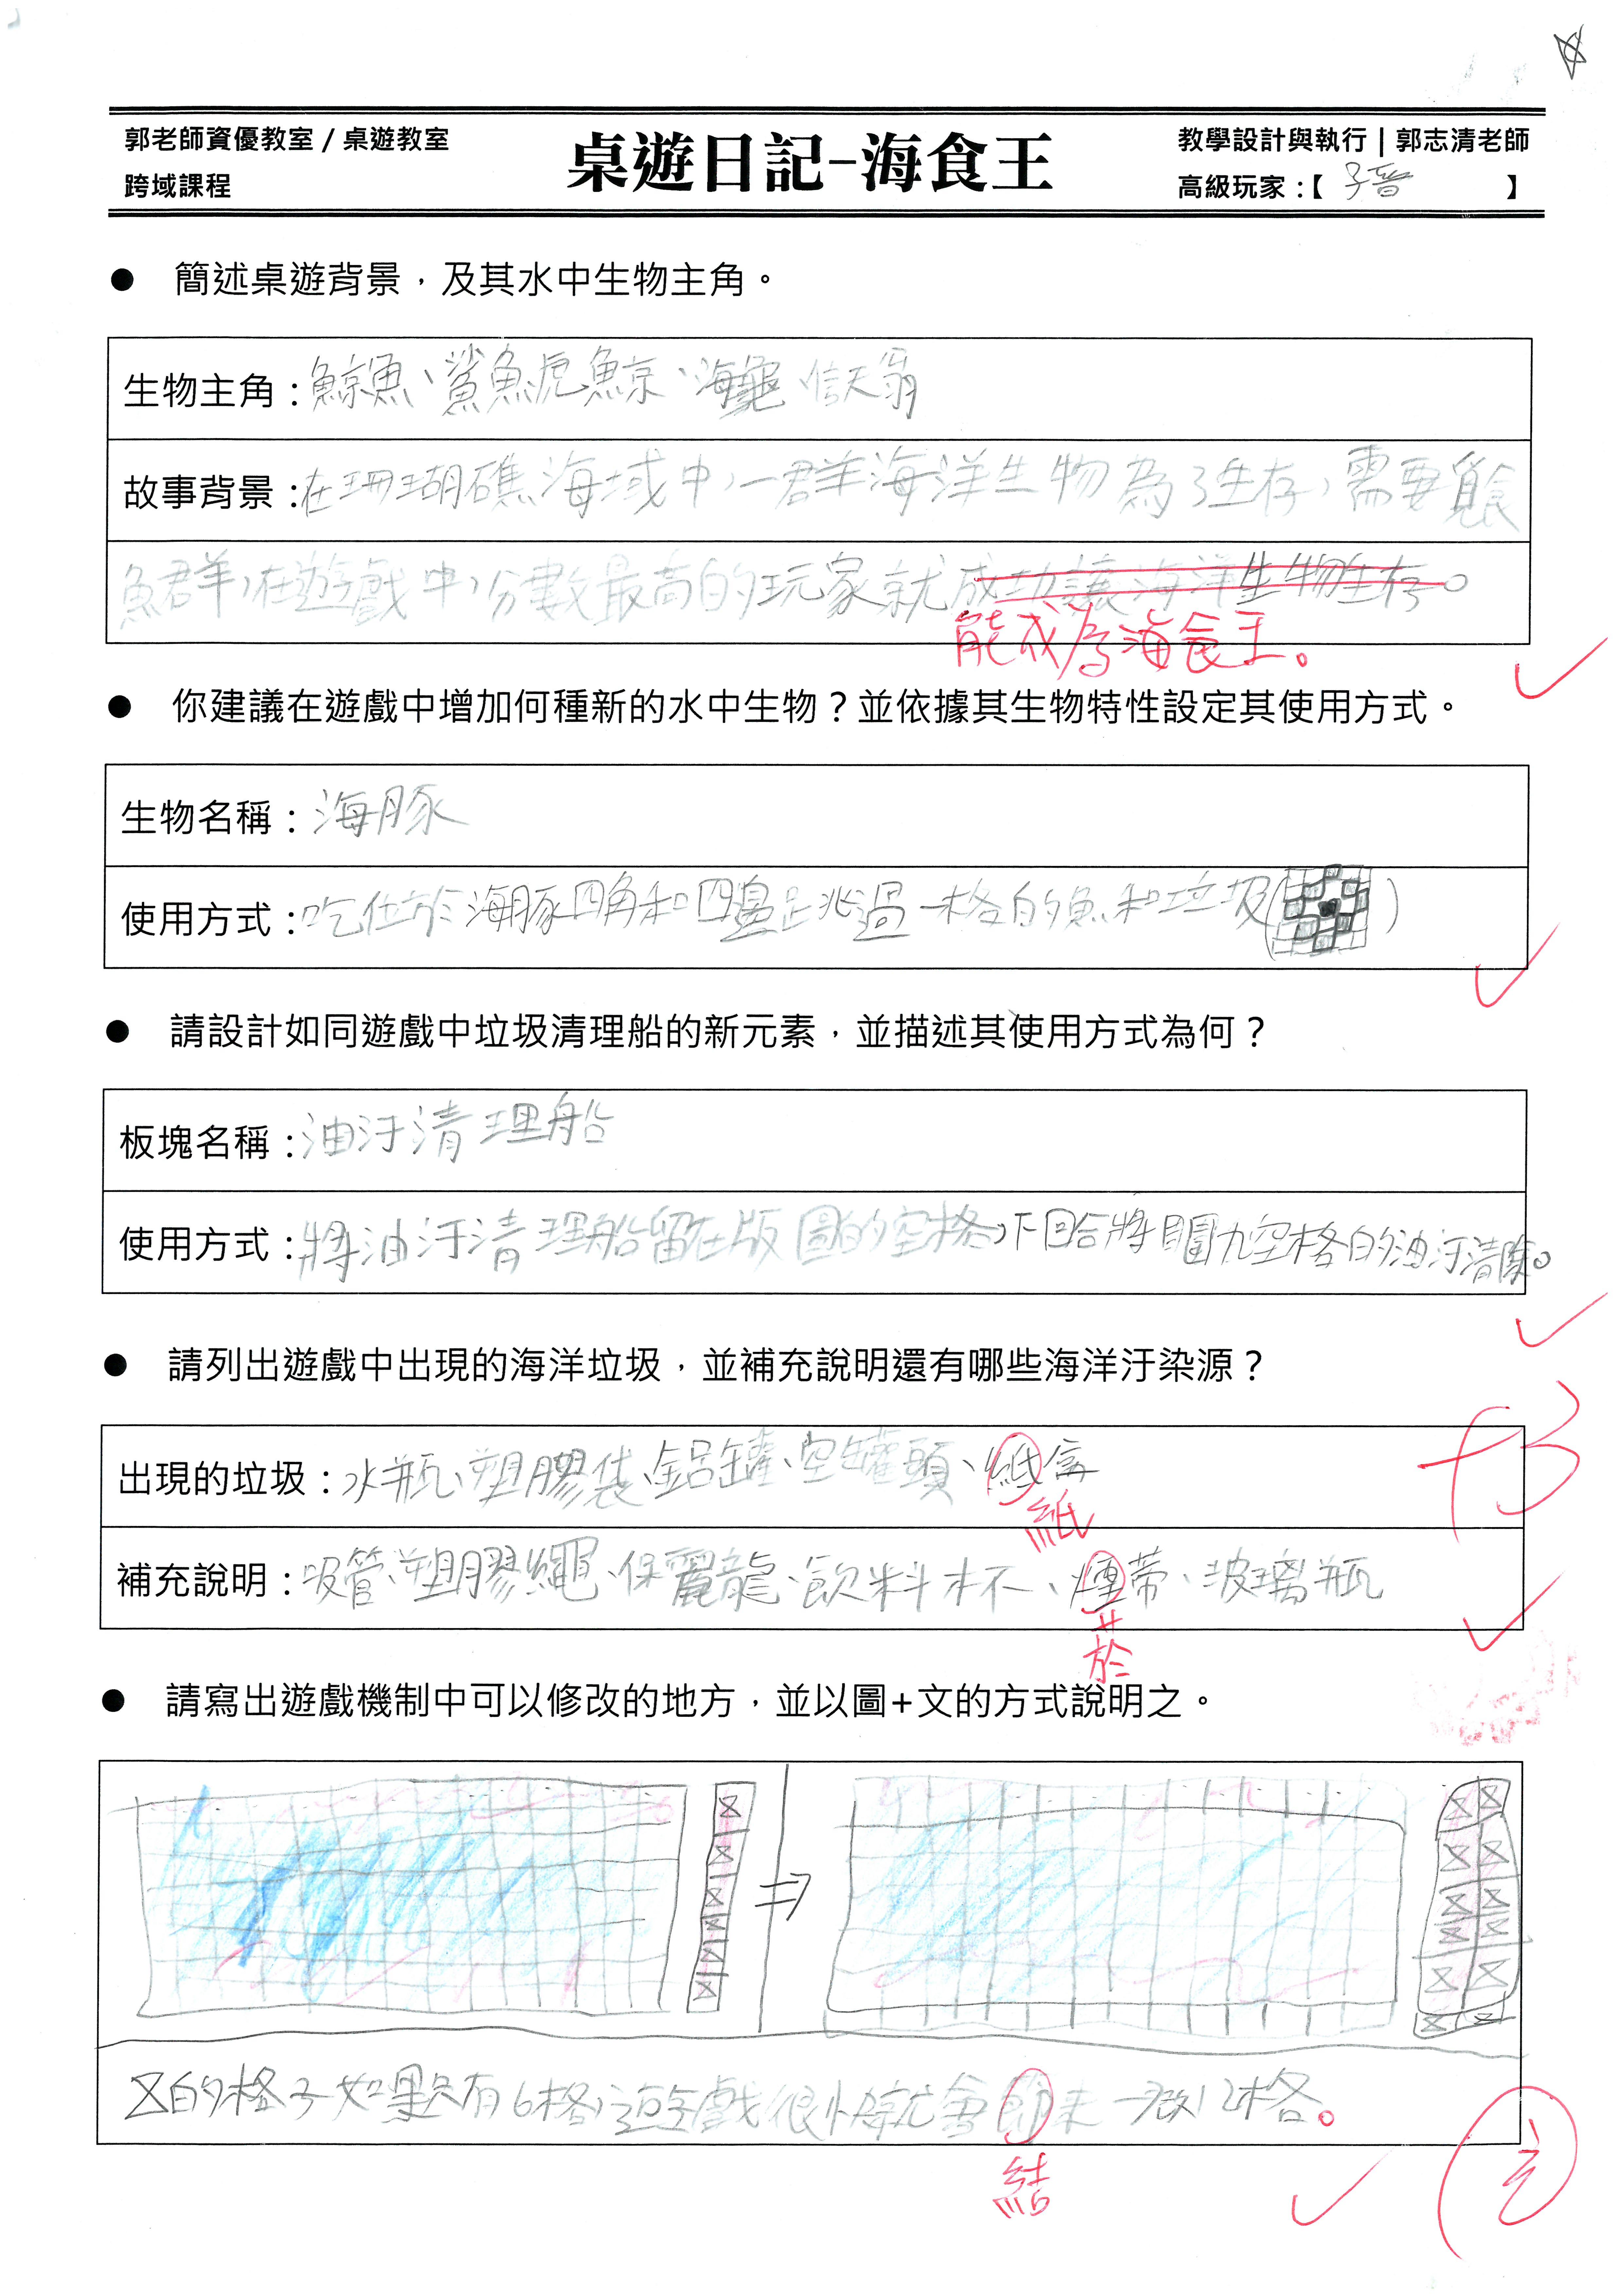 郭老師資優教室 / 桌遊教室
跨域課程
桌遊日記-海食王
教學設計與執行 | 郭志清老師
高級玩家:【 子晉 】
● 簡述桌遊背景，及其水中生物主角。
生物主角:鯨魚、鯊魚虎鯨、海龜、信天翁
故事背景:在珊瑚礁海域中,一群海洋生物為了生存,需要覓食
魚群,在遊戲中,分數最高的玩家就成功讓海洋生物生存。
能成為海食王。
● 你建議在遊戲中增加何種新的水中生物？並依據其生物特性設定其使用方式。
生物名稱:海豚
使用方式:吃位於海豚四角和四邊跳過一格的魚和垃圾( )
● 請設計如同遊戲中垃圾清理船的新元素，並描述其使用方式為何？
板塊名稱:油汙清理船
使用方式:將油汙清理船留在版圖的空格,下回合將周圍九空格的油汙清除。
● 請列出遊戲中出現的海洋垃圾，並補充說明還有哪些海洋汙染源？
+3
出現的垃圾:水瓶、塑膠袋、鋁罐、空罐頭、紙盒
紙
補充說明:吸管、塑膠繩、保麗龍、飲料杯、煙蒂、玻璃瓶
菸
● 請寫出遊戲機制中可以修改的地方，並以圖+文的方式說明之。
的格子如果只有6格,遊戲很快就會 束→改12格。
結